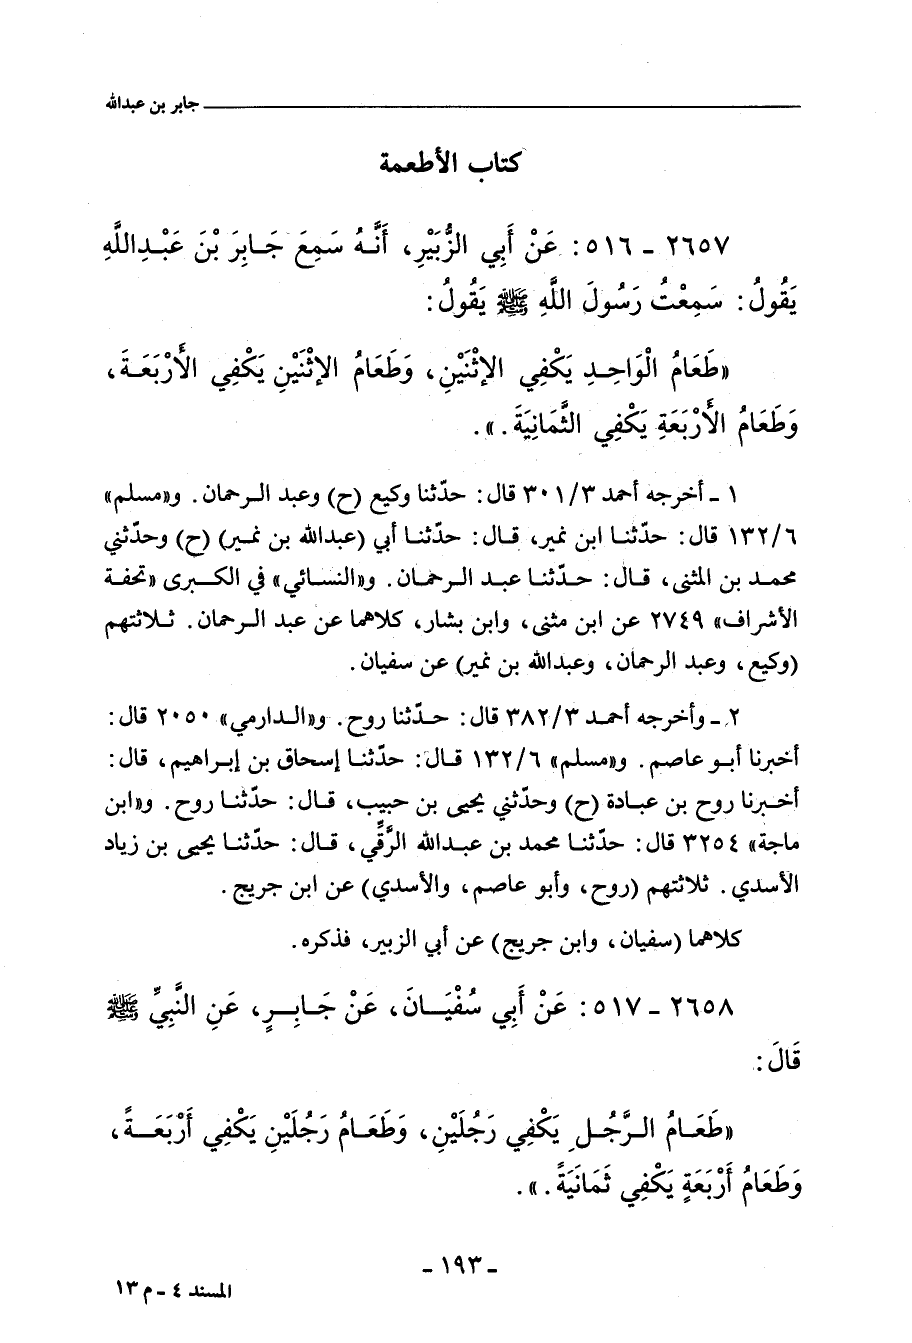 جابر بن عبدالله
كتاب الأطعمة
٢٦٥٧ ـ ٥١٦: عَنْ أَبِي الزُّبَيْرِ، أَنَّهُ سَمِعَ جَابِرَ بْنَ عَبْدِاللَّهِ
يَقُولُ: سَمِعْتُ رَسُولَ اللَّهِ ﷺ يَقُولُ:
«طَعَامُ الْوَاحِدِ يَكْفِي الإِثْنَيْنِ، وَطَعَامُ الإِثْنَيْنِ يَكْفِي الأَرْبَعَةَ،
وَطَعَامُ الأَرْبَعَةِ يَكْفِي الثَّمَانِيَةَ.».
١ ـ أخرجه أحمد ٣٠١/٣ قال: حدّثنا وكيع (ح) وعبد الرحمان. و«مسلم»
١٣٢/٦ قال: حدّثنا ابن نمير، قال: حدّثنا أبي (عبدالله بن نمير) (ح) وحدّثني
محمد بن المثنى، قال: حدّثنا عبد الرحمان. و«النسائي» في الكبرى «تحفة
الأشراف» ٢٧٤٩ عن ابن مثنى، وابن بشار، كلاهما عن عبد الرحمان. ثلاثتهم
(وكيع، وعبد الرحمان، وعبدالله بن نمير) عن سفيان.
٢ ـ وأخرجه أحمد ٣٨٢/٣ قال: حدّثنا روح. و«الدارمي» ٢٠٥٠ قال:
أخبرنا أبو عاصم. و«مسلم» ١٣٢/٦ قال: حدّثنا إسحاق بن إبراهيم، قال:
أخبرنا روح بن عبادة (ح) وحدّثني يحيى بن حبيب، قال: حدّثنا روح. و«ابن
ماجة» ٣٢٥٤ قال: حدّثنا محمد بن عبدالله الرَّقِّي، قال: حدّثنا يحيى بن زياد
الأسدي. ثلاثتهم (روح، وأبو عاصم، والأسدي) عن ابن جريج.
كلاهما (سفيان، وابن جريج) عن أبي الزبير، فذكره.
٢٦٥٨ ـ ٥١٧: عَنْ أَبِي سُفْيَانَ، عَنْ جَابِرٍ، عَنِ النَّبِيِّ ﷺ
قَالَ:
«طَعَامُ الرَّجُلِ يَكْفِي رَجُلَيْنِ، وَطَعَامُ رَجُلَيْنِ يَكْفِي أَرْبَعَةً،
وَطَعَامُ أَرْبَعَةٍ يَكْفِي ثَمَانَيَةً.».
ـ ١٩٣ ـ
المسند ٤ ـ م ١٣